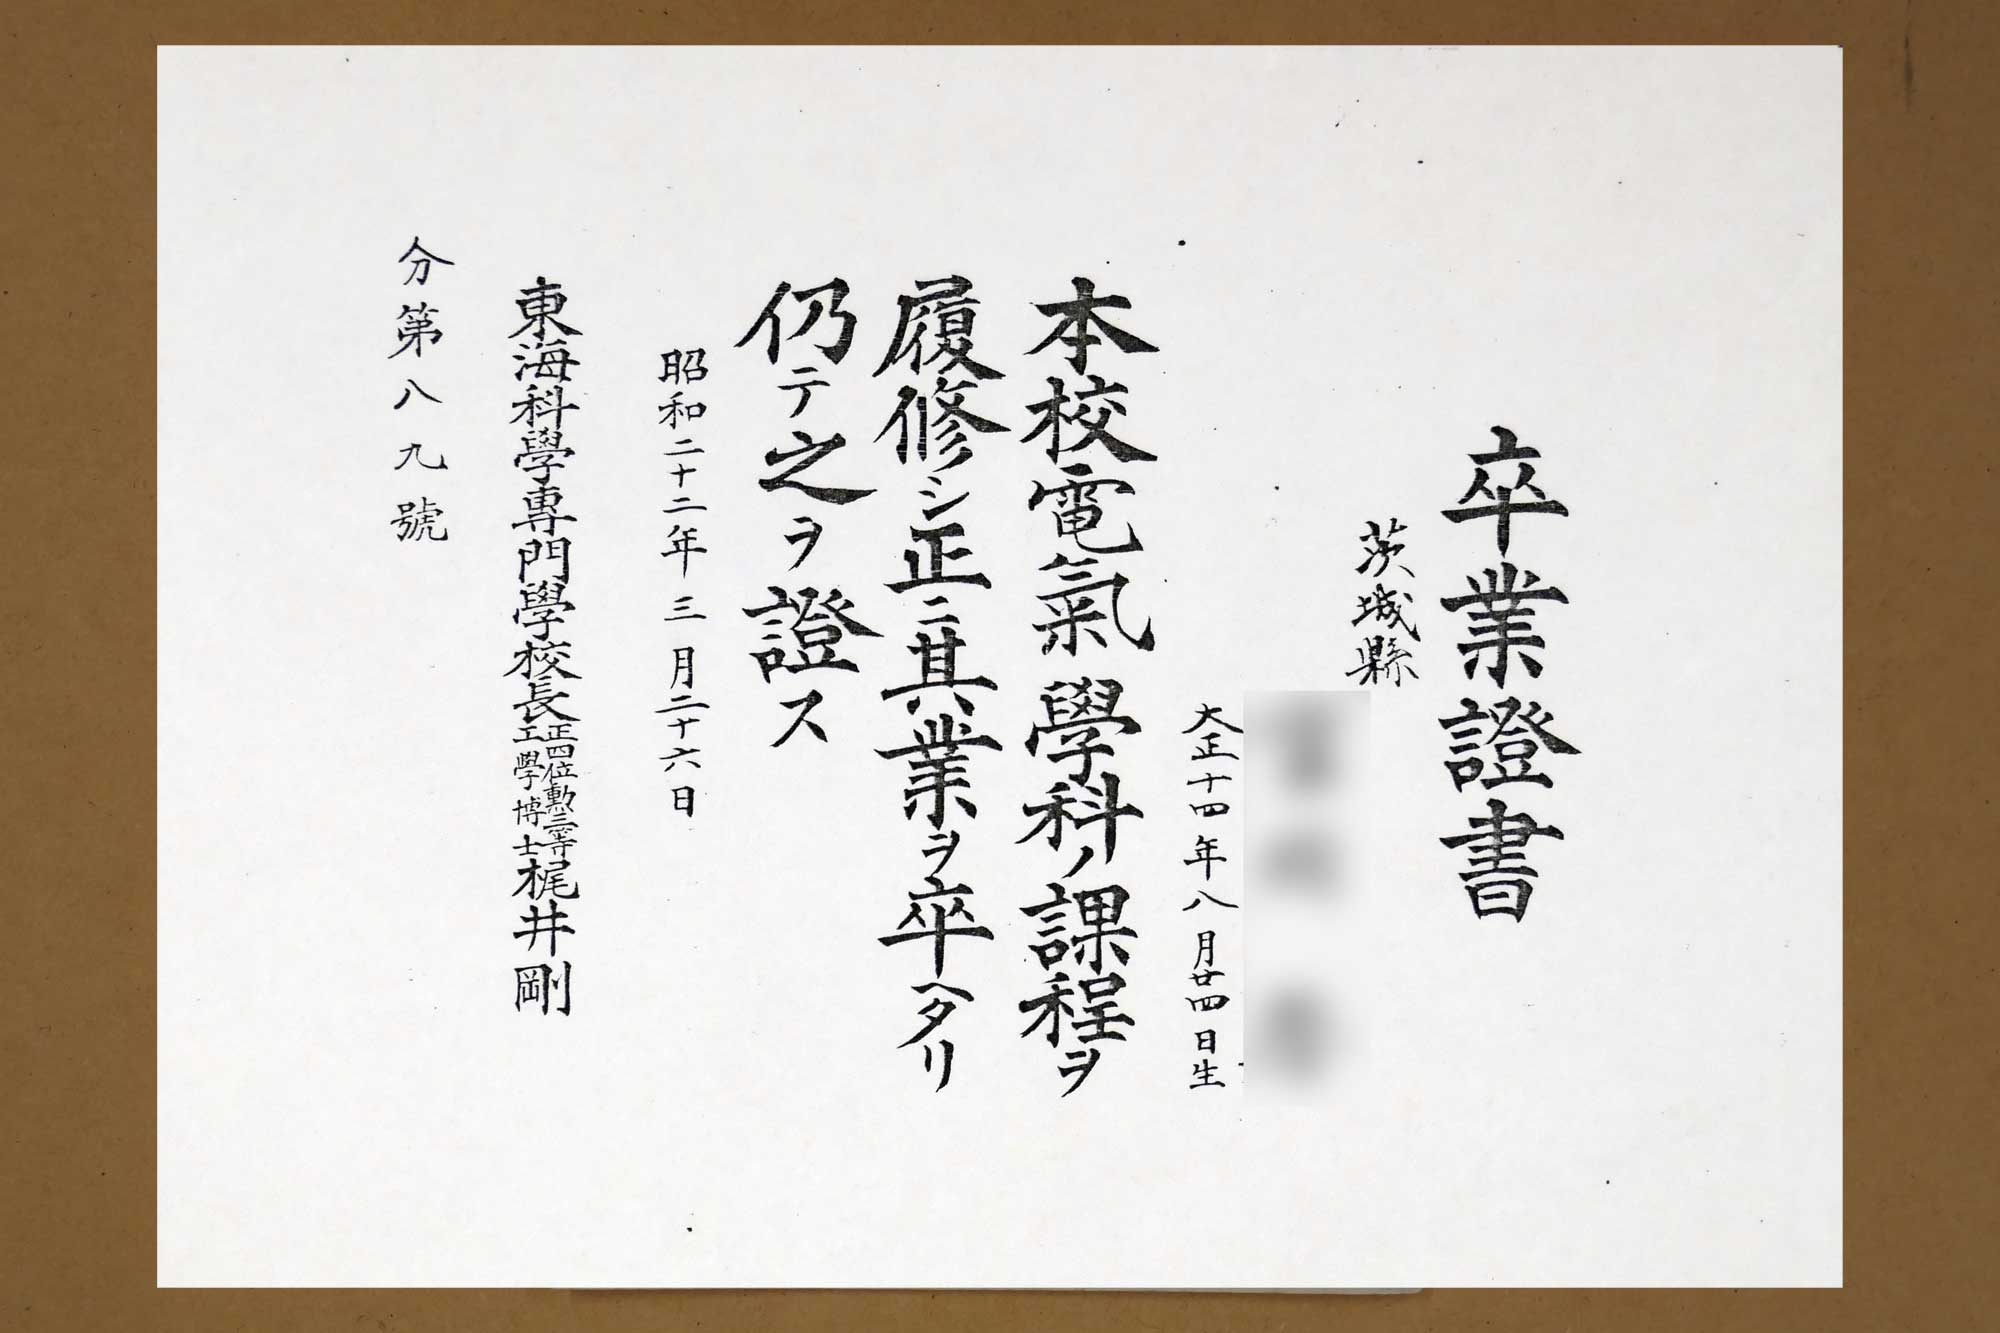 卒業證書
茨城縣
大正十四年八月廿四日生
本校電氣學科ノ課程ヲ
履修シ正ニ其業ヲ卒ヘタリ
仍テ之ヲ證ス
昭和二十二年三月二十六日
東海科學專門學校長正四位勳三等工學博士梶井剛
分第八九號